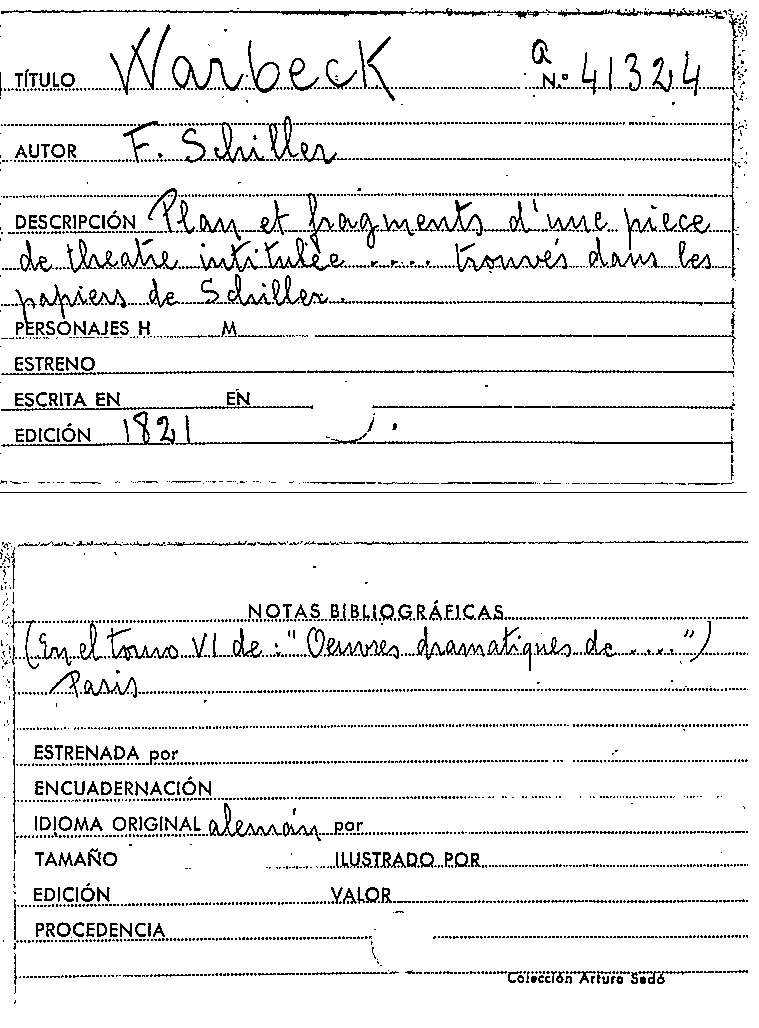 TÍTULO Warbeck a N.º 41324
AUTOR F. Schiller
DESCRIPCIÓN Plan et fragments d'une piece
de theatre intitulée .... trouvés dans les
papiers de Schiller.
PERSONAJES H M
ESTRENO
ESCRITA EN EN
EDICIÓN 1821
NOTAS BIBLIOGRÁFICAS
(En el tomo VI de: "Oeuvres dramatiques de ....")
Paris
ESTRENADA por
ENCUADERNACIÓN
IDIOMA ORIGINAL alemán por
TAMAÑO ILUSTRADO POR
EDICIÓN VALOR
PROCEDENCIA
Colección Arturo Sedó